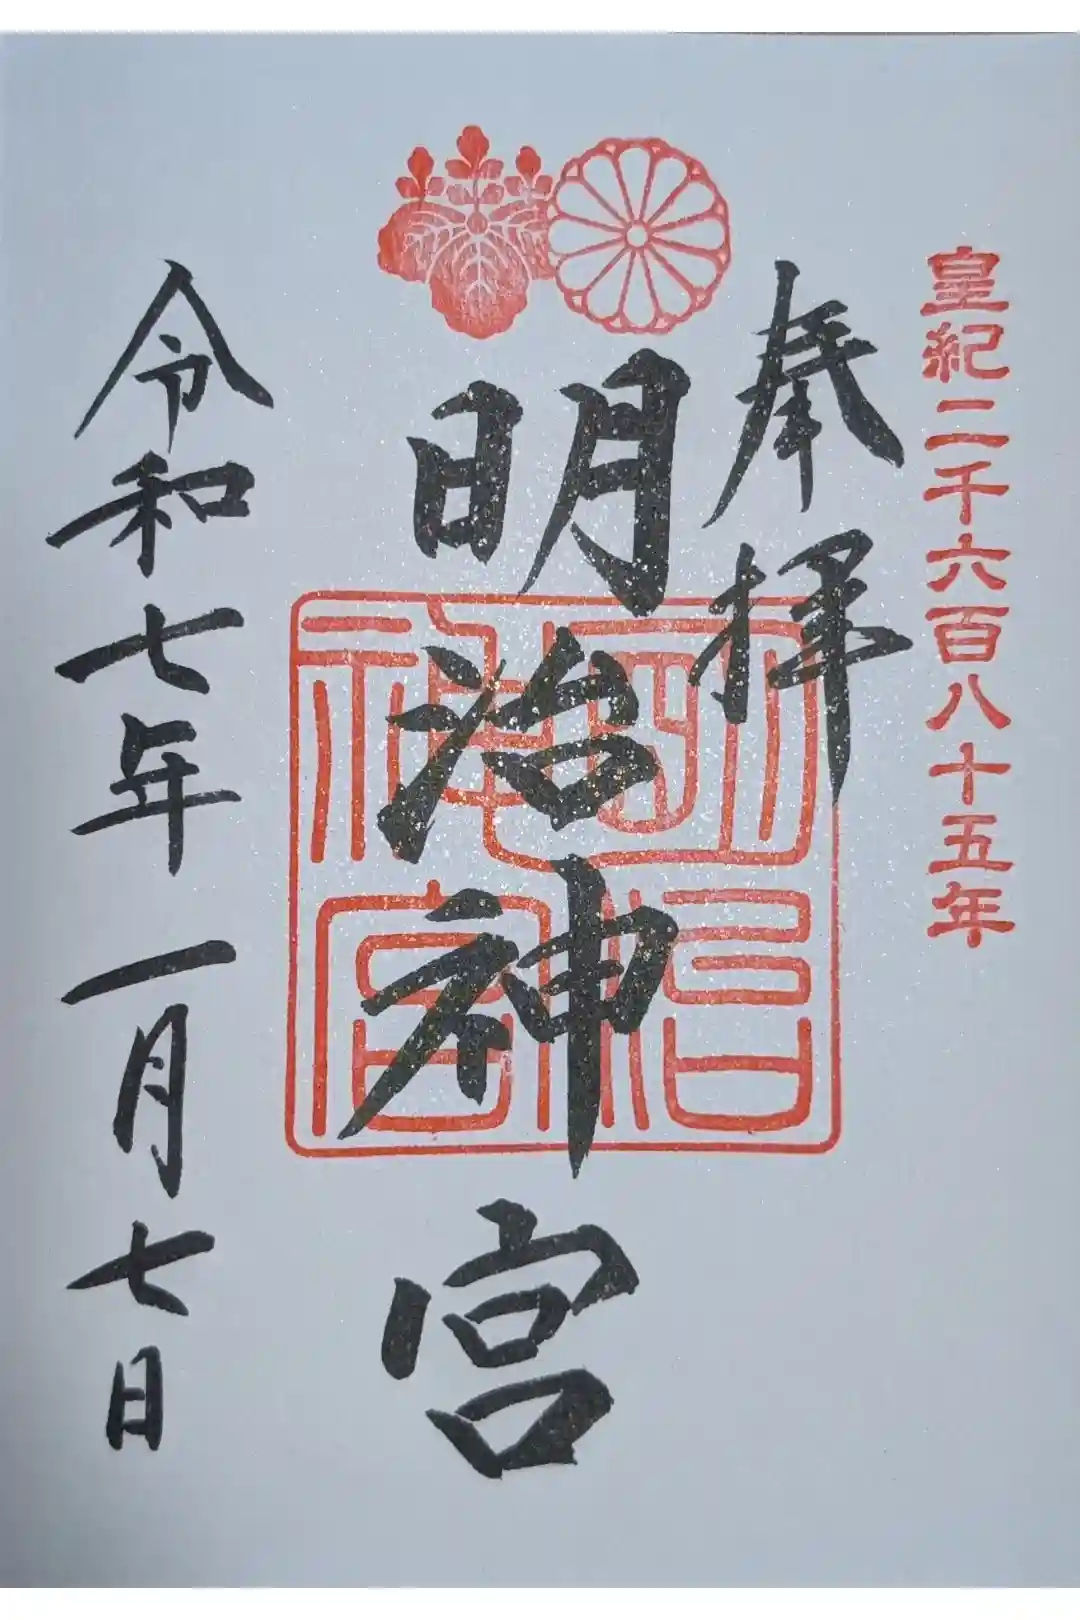 皇紀二千六百八十五年
奉拝
明治神宮
明治神宮
令和七年一月七日